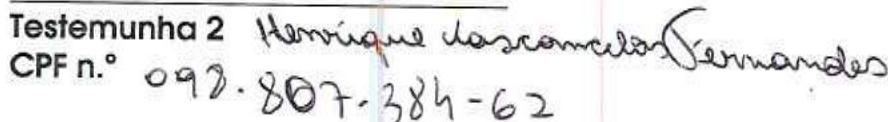 Testemunha 2 Henrique Vasconcelos Fernandes
CPF n.º 098.807.384-62